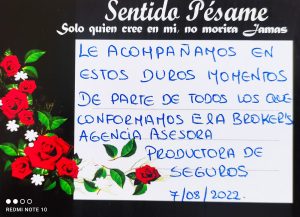 Sentido Pésame
Solo quien cree en mi, no morira Jamas
LE ACOMPAÑAMOS EN
ESTOS DUROS MOMENTOS
DE PARTE DE TODOS LOS QUE
CONFORMAMOS ERA BROKER'S
AGENCIA ASESORA
PRODUCTORA DE
SEGUROS
7/08/2022.
REDMI NOTE 10